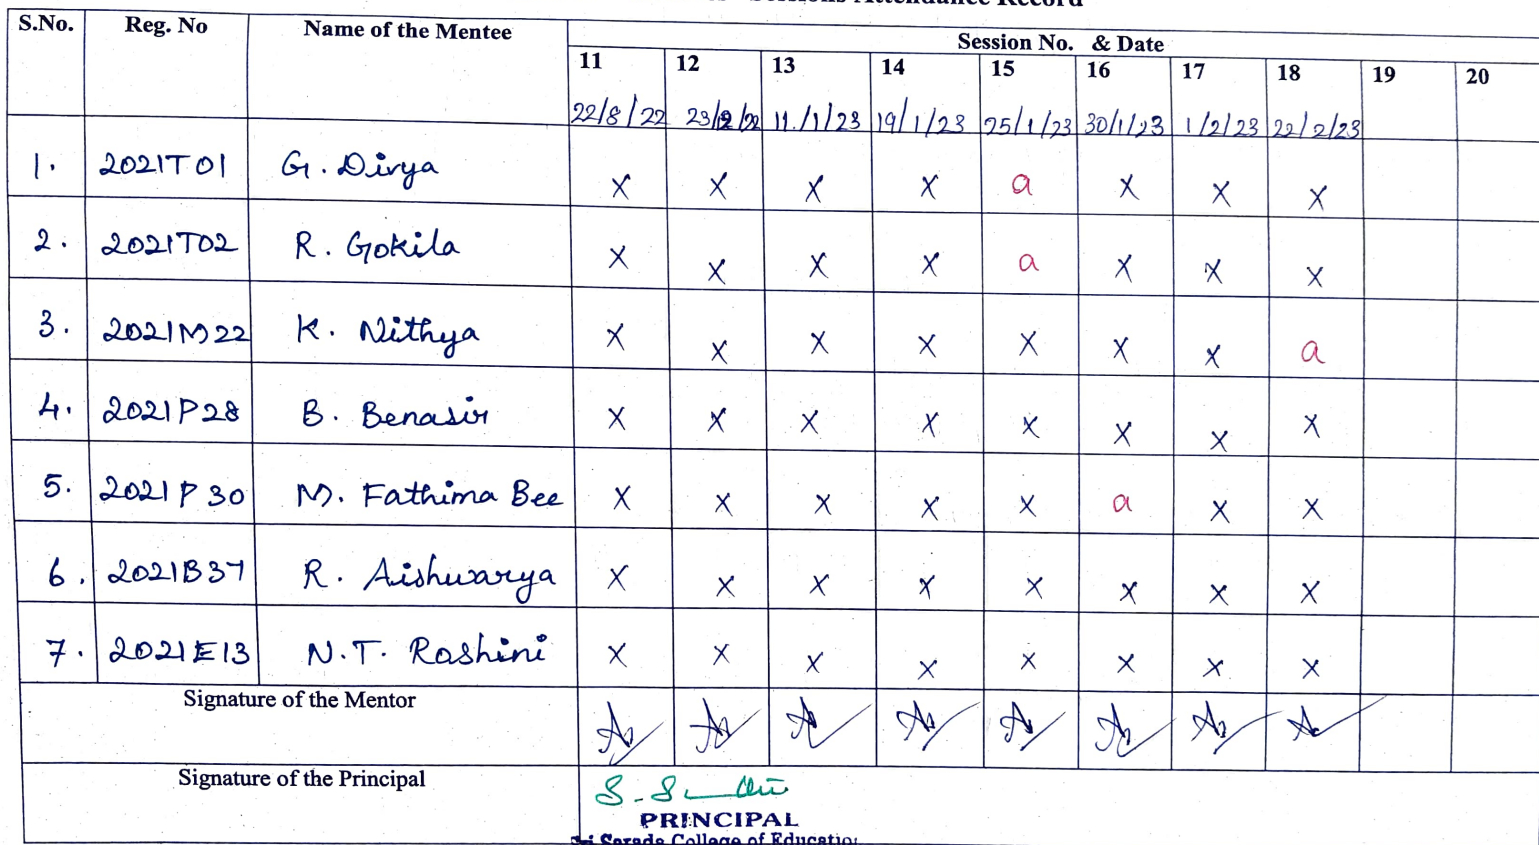 Sessions Attendance Record
S.No. Reg. No Name of the Mentee Session No. & Date
11 12 13 14 15 16 17 18 19 20
22/8/22 23/12/22 11/1/23 19/1/23 25/1/23 30/1/23 1/2/23 22/2/23
1. 2021T01 G. Divya x x x x a x x x
2. 2021T02 R. Gokila x x x x a x x x
3. 2021M22 K. Nithya x x x x x x x a
4. 2021P28 B. Benasir x x x x x x x x
5. 2021P30 M. Fathima Bee x x x x x a x x
6. 2021B37 R. Aishwarya x x x x x x x x
7. 2021E13 N.T. Roshini x x x x x x x x
Signature of the Mentor
Signature of the Principal
PRINCIPAL
Sri Sarada College of Education